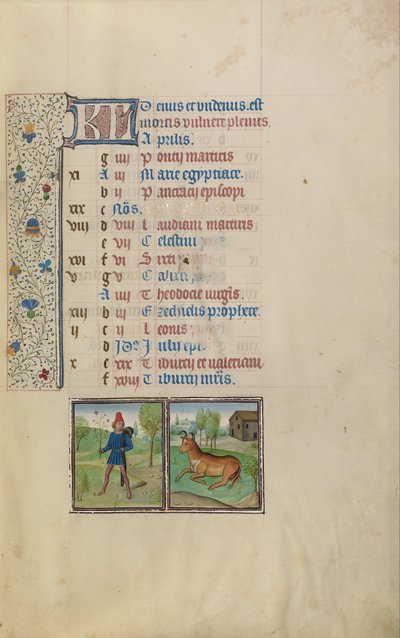 KL Denus et undenus est
mortis vulnere plenus.
Aprilis.
g iiii Poncij martiris
xi A iii Marie egyptiace.
b ii Pancracij episcopi
xix c Nōs.
viii d viii Claudiani martiris
e vii Celestini
xvi f vi Sixti
v g v Calixti
A iiii Theodocie virgīs.
xiii b iii Ezechielis prophete.
ii c ii Leonis.
d Idꝰ Julii epi.
x e xix Tiburcij et valeriani
f xviii Tiburcij mrīs.